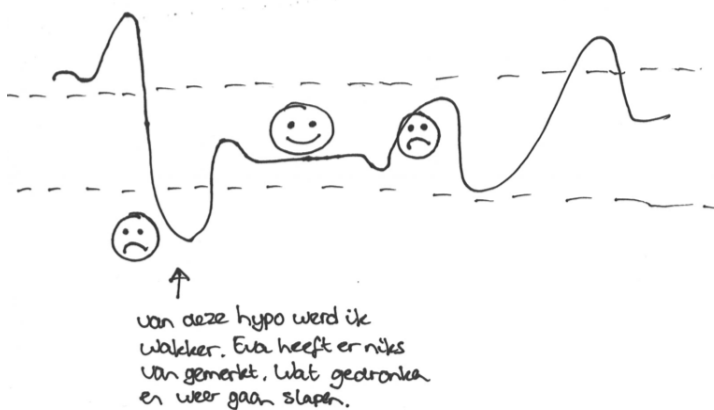 van deze hypo werd ik
wakker. Eva heeft er niks
van gemerkt. Wat gedronken
en weer gaan slapen.